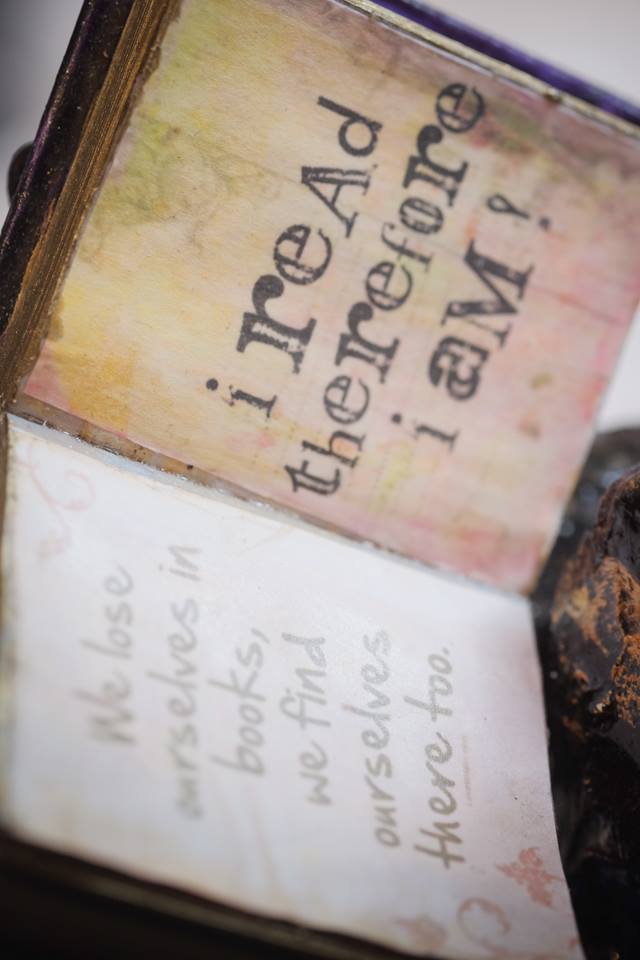 We lose
ourselves in
books,
we find
ourselves
there too.
i reAd
therefore
i aM!